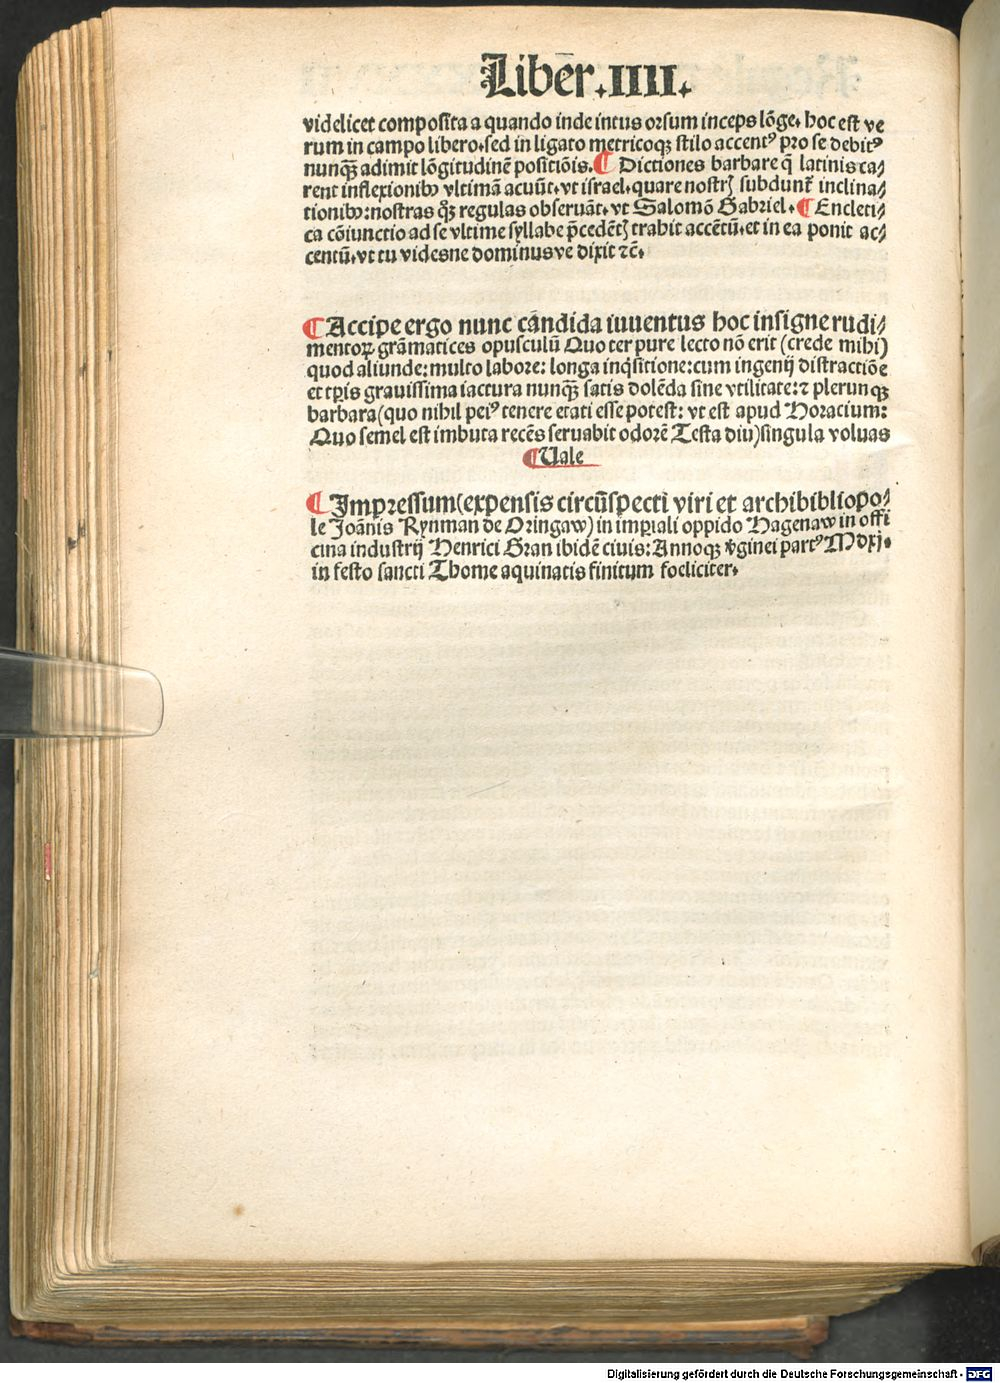 Liber .IIII.
videlicet composita a quando inde intus orsum inceps lōge. hoc est ve
rum in campo libero. sed in ligato metricoqꝫ stilo accentꝰ pro se debitꝰ
nunqꝫ adimit lōgitudinē positiōis. ¶ Dictiones barbare q̄ latinis ca⸗
rent inflexionibꝰ vltimā acuūt. vt israel. quare nostrꝭ subdunt᷑ inclina⸗
tionibꝰ: nostras qꝫ regulas obseruāt. vt Salomō Gabriel. ¶ Encleti⸗
ca cōiunctio ad se vltime syllabe p̄cedētꝭ trahit accētū. et in ea ponit ac⸗
centū. vt tu videsne dominusve dixit ⁊c̄.
¶ Accipe ergo nunc cādida iuuentus hoc insigne rudi⸗
mentoꝝ grāmatices opusculū Quo ter pure lecto nō erit (crede mihi)
quod aliunde: multo labore: longa inq̇sitione: cum ingenij distractiōe
et tꝑis grauissima iactura nunqꝫ satis dolēda sine vtilitate: ⁊ plerunqꝫ
barbara (quo nihil peiꝰ tenere etati esse potest: vt est apud Horacium:
Quo semel est imbuta recēs seruabit odorē Testa diu) singula voluas
¶ Uale
¶ Impressum (expensis circūspecti viri et archibibliopo⸗
le Joānis Rynman de Oringaw) in imꝑiali oppido Hagenaw in offi
cina industrij Henrici Gran ibidē ciuis: Annoqꝫ v̄ginei partꝰ Mdxj.
in festo sancti Thome aquinatis finitum foeliciter.
Digitalisierung gefördert durch die Deutsche Forschungsgemeinschaft - DFG